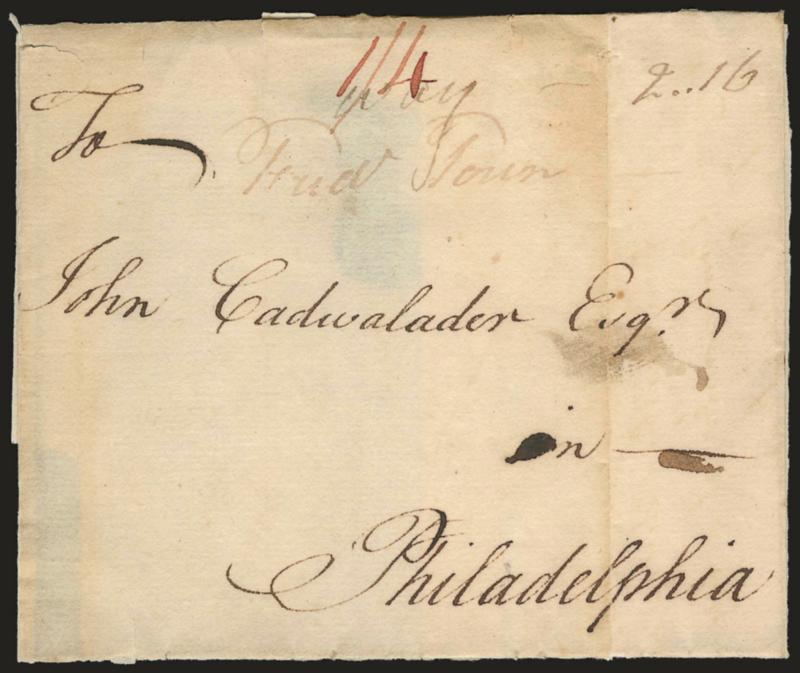 1/4
way 2..16
To
Fred Town
John Cadwalader Esqr
in
Philadelphia